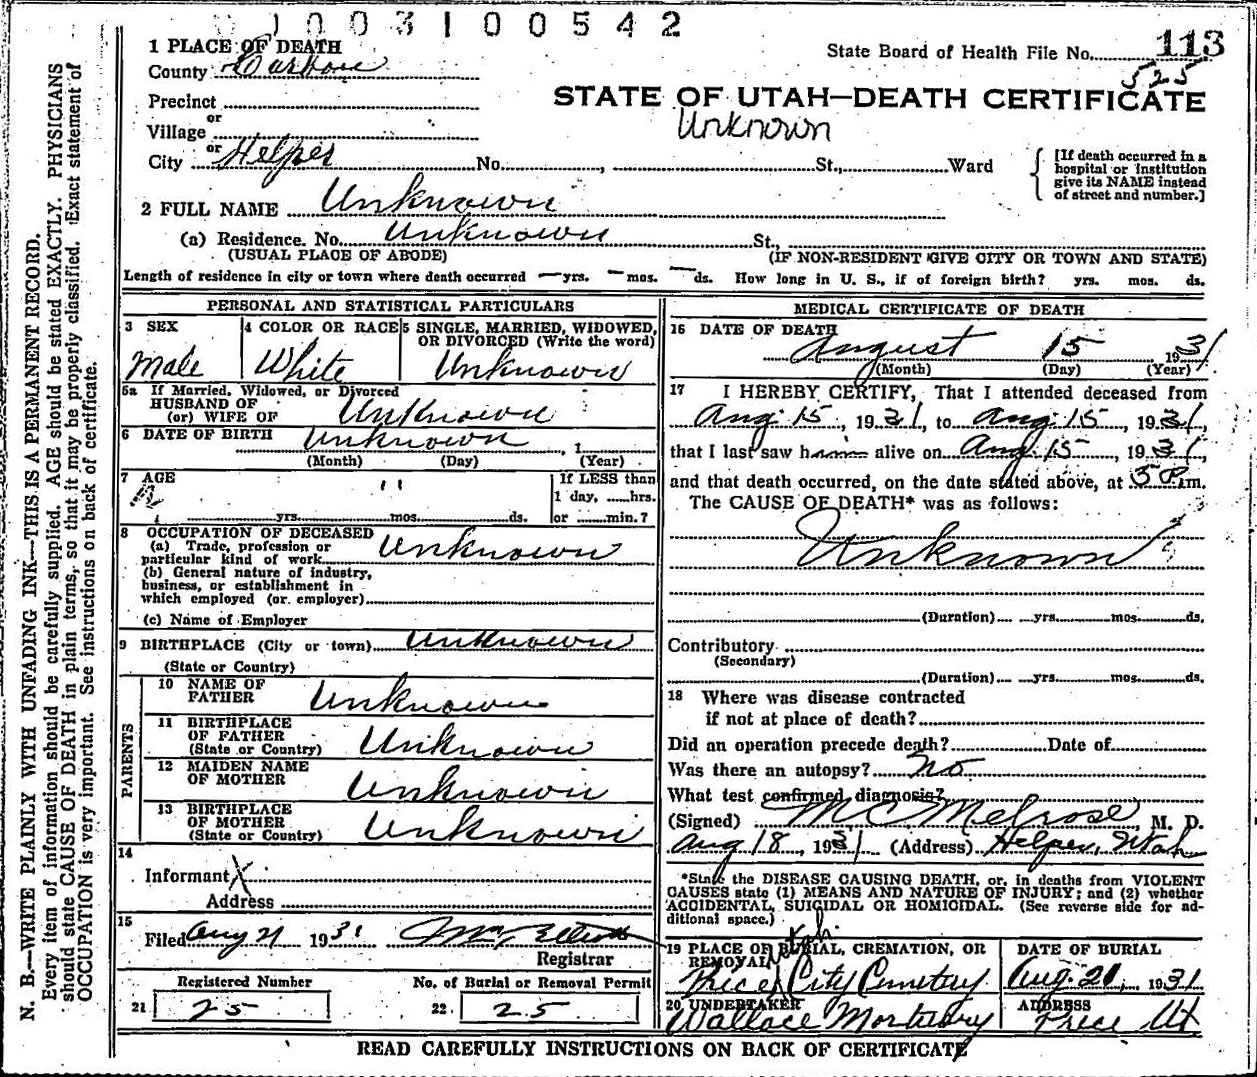 1003100542
113
State Board of Health File No.
525
1 PLACE OF DEATH
County Carbon
STATE OF UTAH—DEATH CERTIFICATE
Precinct
or
Village
Unknown
or
City Helper No. , St., Ward
[If death occurred in a hospital or institution give its NAME instead of street and number.]
2 FULL NAME Unknown
(a) Residence. No. Unknown St.,
(USUAL PLACE OF ABODE) (IF NON-RESIDENT GIVE CITY OR TOWN AND STATE)
Length of residence in city or town where death occurred — yrs. — mos. — ds. How long in U. S., if of foreign birth? yrs. mos. ds.
PERSONAL AND STATISTICAL PARTICULARS
3 SEX
Male
4 COLOR OR RACE
White
5 SINGLE, MARRIED, WIDOWED,
OR DIVORCED (Write the word)
Unknown
5a If Married, Widowed, or Divorced
HUSBAND OF
(or) WIFE OF Unknown
6 DATE OF BIRTH Unknown , 1
(Month) (Day) (Year)
7 AGE
yrs. mos. ds.
If LESS than
1 day, hrs.
or min.?
8 OCCUPATION OF DECEASED
(a) Trade, profession or
particular kind of work Unknown
(b) General nature of industry,
business, or establishment in
which employed (or employer)
(c) Name of Employer
9 BIRTHPLACE (City or town) Unknown
(State or Country)
PARENTS
10 NAME OF
FATHER Unknown
11 BIRTHPLACE
OF FATHER
(State or Country) Unknown
12 MAIDEN NAME
OF MOTHER Unknown
13 BIRTHPLACE
OF MOTHER
(State or Country) Unknown
14
Informant X
Address
15
Filed Aug 21 1931
Registrar
Registered Number
21 25
No. of Burial or Removal Permit
22 25
MEDICAL CERTIFICATE OF DEATH
16 DATE OF DEATH
August 15 1931
(Month) (Day) (Year)
17 I HEREBY CERTIFY, That I attended deceased from
Aug 15, 1931, to Aug 15, 1931,
that I last saw h alive on Aug 15, 1931,
and that death occurred, on the date stated above, at 5 P.m.
The CAUSE OF DEATH* was as follows:
Unknown
(Duration) yrs. mos. ds.
Contributory
(Secondary)
(Duration) yrs. mos. ds.
18 Where was disease contracted
if not at place of death?
Did an operation precede death? Date of
Was there an autopsy? No
What test confirmed diagnosis?
(Signed) McMelrose, M. D.
Aug 18, 1931 (Address) Helper, Utah
*State the DISEASE CAUSING DEATH, or, in deaths from VIOLENT
CAUSES state (1) MEANS AND NATURE OF INJURY; and (2) whether
ACCIDENTAL, SUICIDAL OR HOMICIDAL. (See reverse side for ad-
ditional space.)
19 PLACE OF BURIAL, CREMATION, OR
REMOVAL
Price City Cemetery
DATE OF BURIAL
Aug. 21, 1931
20 UNDERTAKER
Wallace Mortuary
ADDRESS
Price Ut
READ CAREFULLY INSTRUCTIONS ON BACK OF CERTIFICATE
N. B.—WRITE PLAINLY WITH UNFADING INK—THIS IS A PERMANENT RECORD.
Every item of information should be carefully supplied. AGE should be stated EXACTLY. PHYSICIANS
should state CAUSE OF DEATH in plain terms, so that it may be properly classified. Exact statement of
OCCUPATION is very important. See instructions on back of certificate.